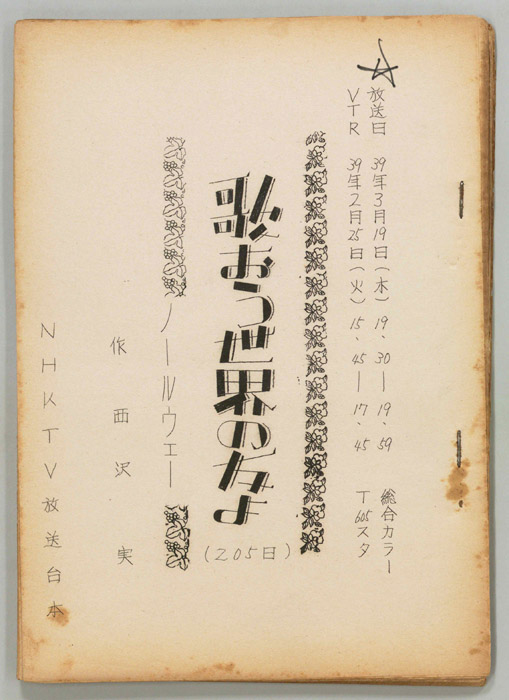 放送日 39年3月19日(木)19、30―19、59 総合カラー
VTR 39年2月25日(火)15、45―17、45 T605スタ
歌おう世界の友よ
(205日)
ノールウェー
作 西沢 実
NHKTV放送台本